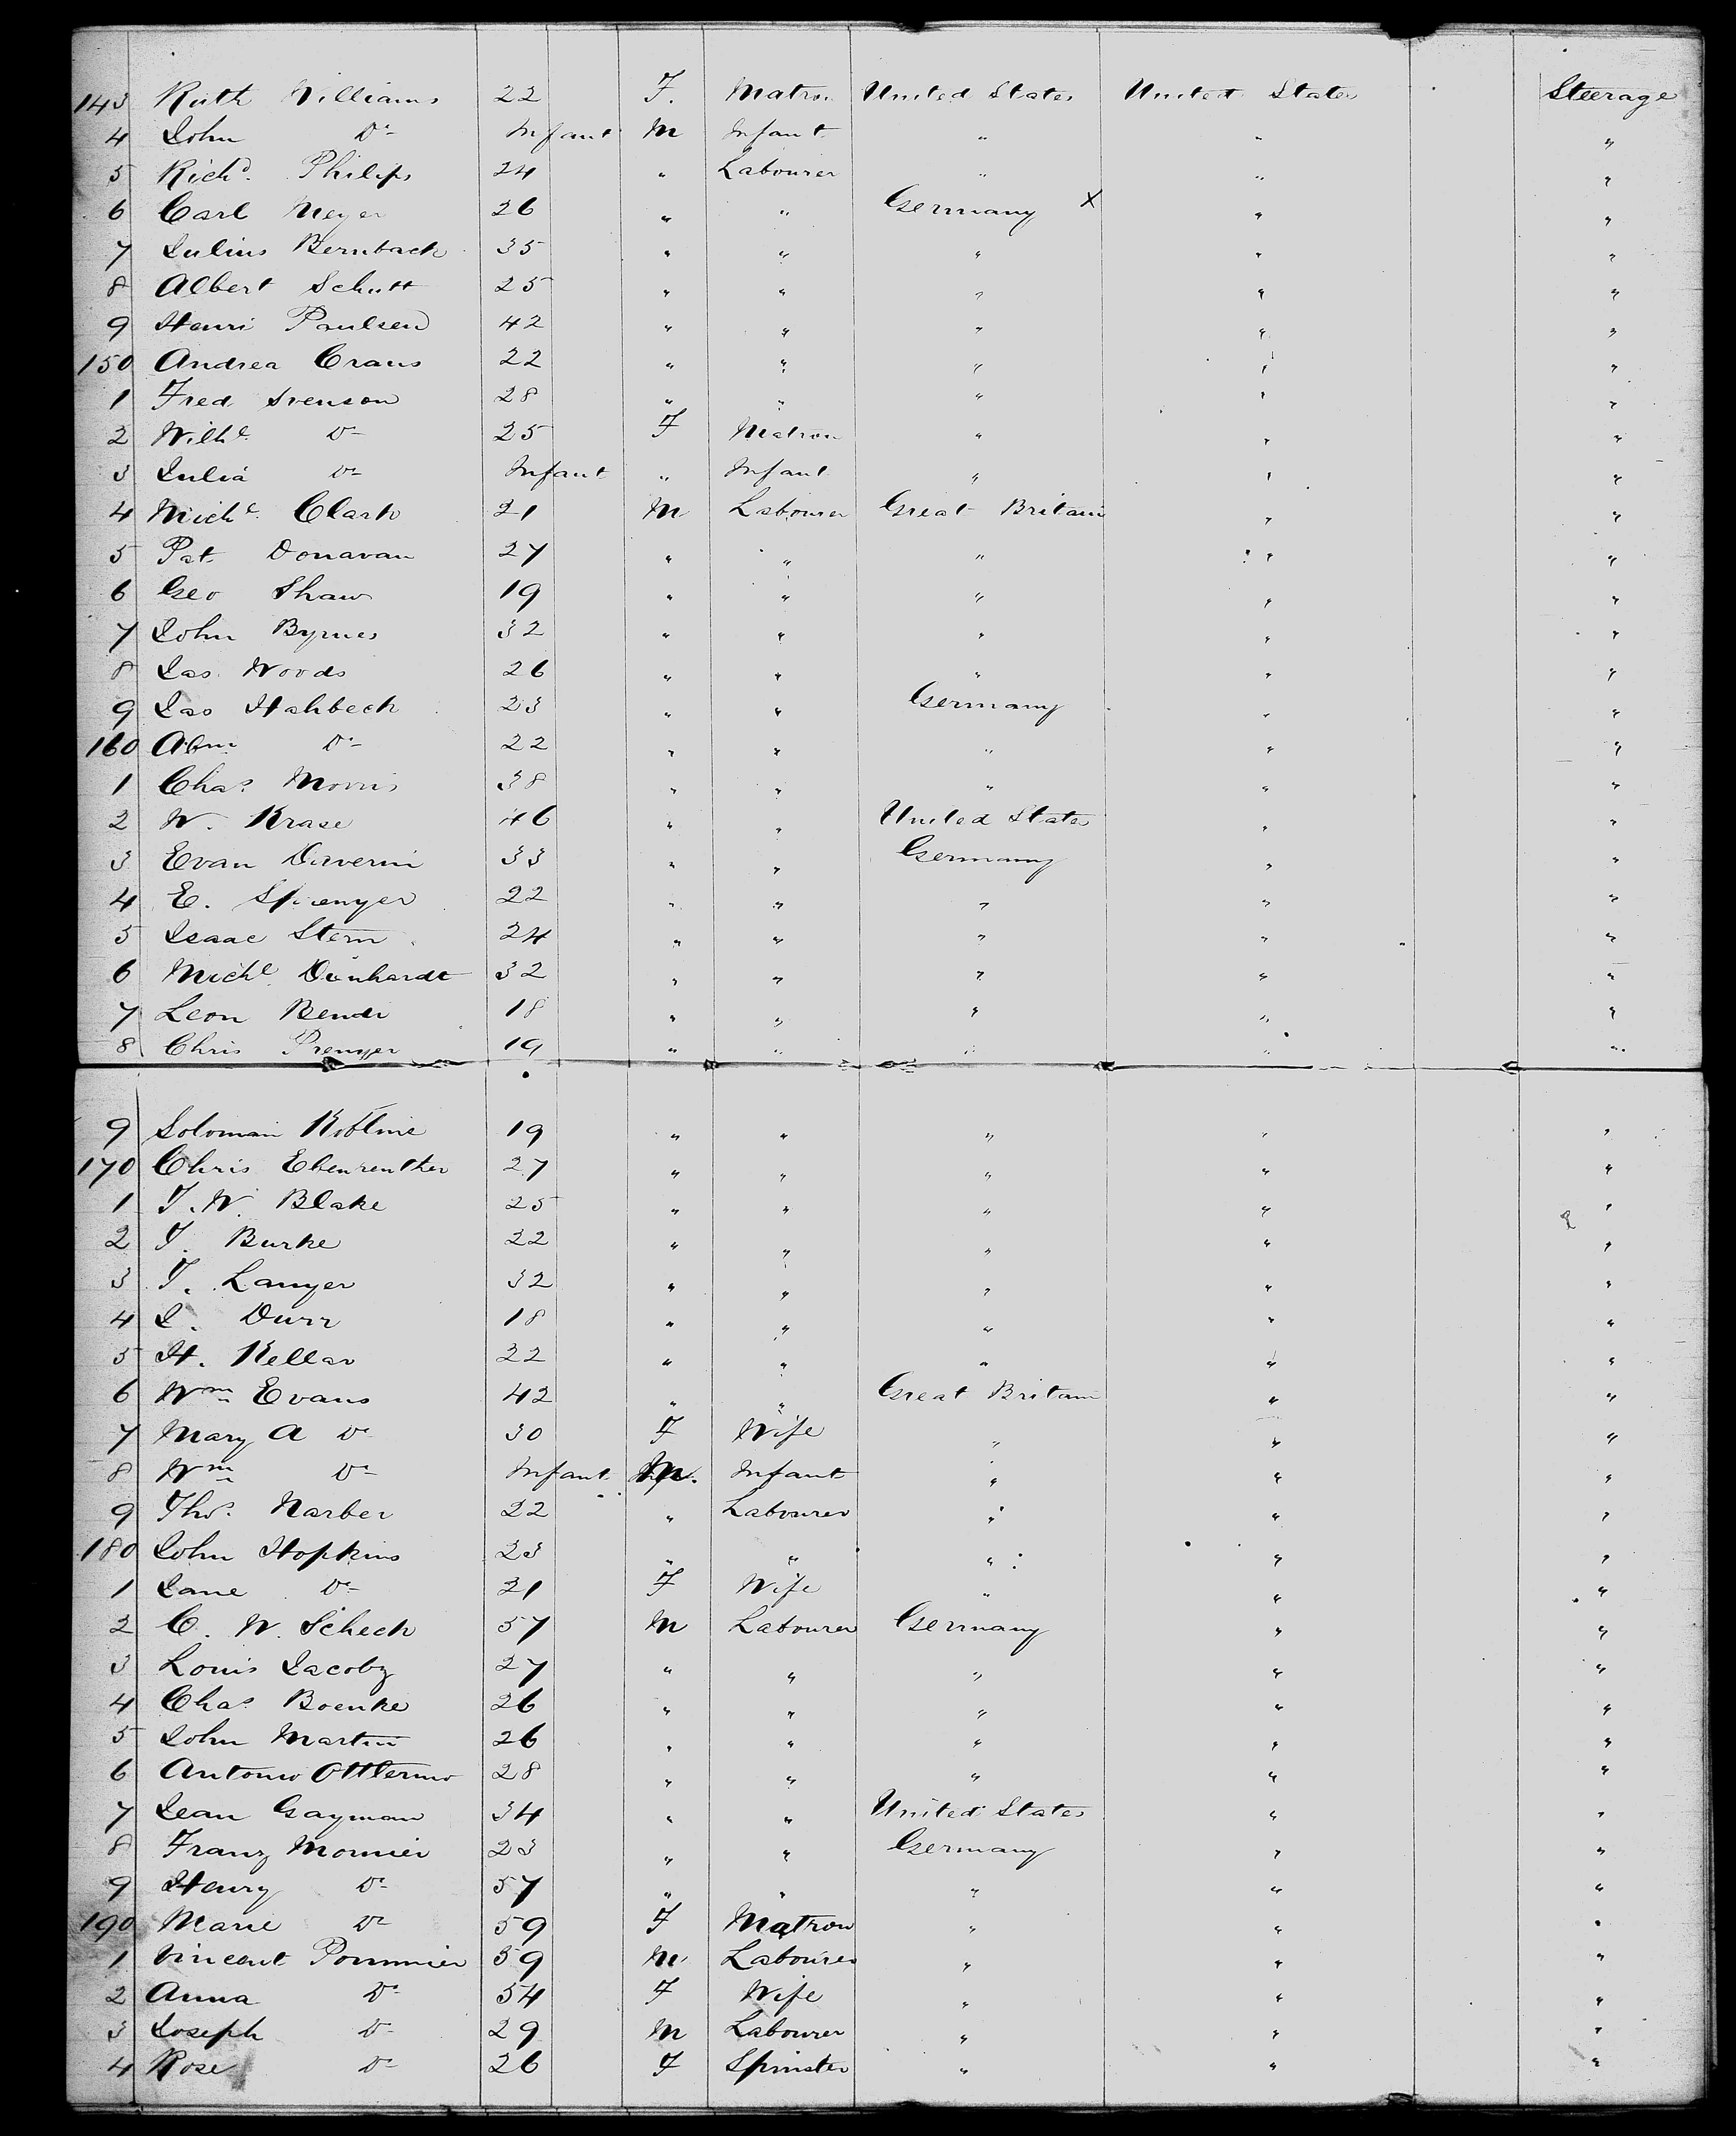 143 Ruth Williams 22 F. Matron United States United States Steerage
4 John Do Infant M Infant " " "
5 Richd. Philips 24 " Labourer " " "
6 Carl Meyer 26 " " Germany X " "
7 Julius Bernback 35 " " " " "
8 Albert Schutt 25 " " " " "
9 Henri Paulsen 42 " " " " "
150 Andrea Craus 22 " " " " "
1 Fred Svenson 28 " " " " "
2 Wilhe. Do 25 F Matron " " "
3 Julia Do Infant " Infant " " "
4 Michl. Clark 21 M Labourer Great Britain " "
5 Pat Donavan 27 " " " " "
6 Geo Shaw 19 " " " " "
7 John Byrnes 32 " " " " "
8 Jas. Woods 26 " " " " "
9 Jas Hahbeck 23 " " Germany " "
160 Abm Do 22 " " " " "
1 Chas. Morris 38 " " " " "
2 W. Krase 46 " " United States " "
3 Evan 33 " " Germany " "
4 E. 22 " " " " "
5 Isaac Stern 24 " " " " "
6 Michl. Dinhardt 32 " " " " "
7 Leon Bendi 18 " " " " "
8 Chris Prenyer 19 " " " " "
9 Soloman 19 " " " " "
170 Chris Ebenrenther 27 " " " " "
1 T. W. Blake 25 " " " " "
2 T. Burke 22 " " " " "
3 T. Lanyer 32 " " " " "
4 J. Durr 18 " " " " "
5 H. Kellar 22 " " " " "
6 Wm Evans 42 " " Great Britain " "
7 Mary A Do 30 F Wife " " "
8 Wm Do Infant M. Infant " " "
9 Thos. Narber 22 " Labourer " " "
180 John Hopkins 23 " " " " "
1 Jane Do 21 F Wife " " "
2 C. W. Scheck 57 M Labourer Germany " "
3 Louis Jacoby 27 " " " " "
4 Chas Boenke 26 " " " " "
5 John Martin 26 " " " " "
6 Antonio Ottlermo 28 " " " " "
7 Jean Gayman 34 " " United States " "
8 Franz Momier 23 " " Germany " "
9 Henry Do 57 " " " " "
190 Marie Do 59 F Matron " " "
1 Vincent Pommier 59 M Labourer " " "
2 Anna Do 54 F Wife " " "
3 Joseph Do 29 M Labourer " " "
4 Rose Do 26 F Spinster " " "